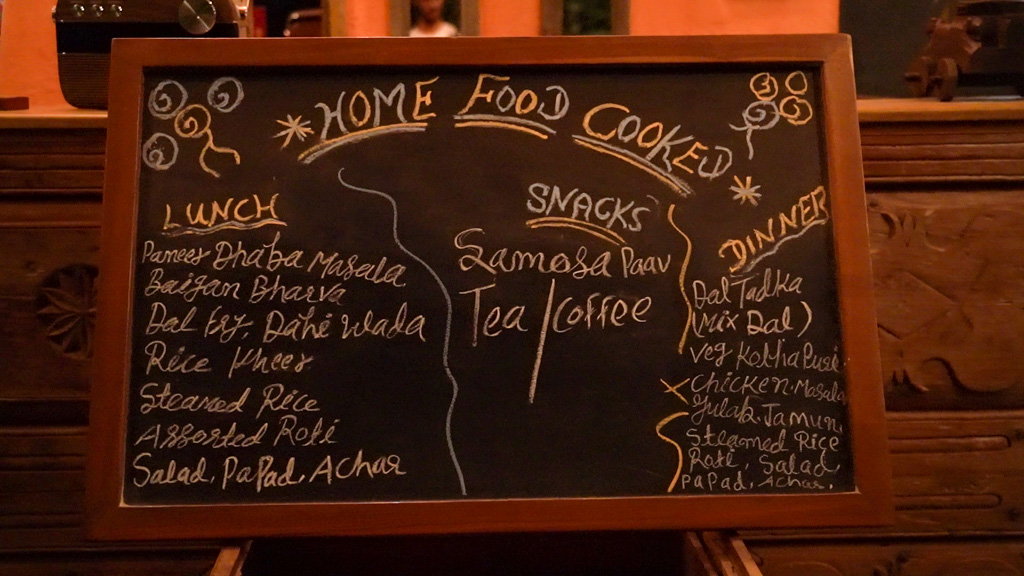 HOME FOOD COOKED
LUNCH
Paneer Dhaba Masala
Baigan Bharva
Dal fry, Dahi Wada
Rice Kheer
Steamed Rice
Assorted Roti
Salad, PaPad, Achar
SNACKS
Samosa Paav
Tea / Coffee
DINNER
Dal Tadka
(Mix Dal)
Veg Kothia
Chicken Masala
Gulab Jamun,
Steamed Rice
Roti, Salad,
PaPad, Achar.